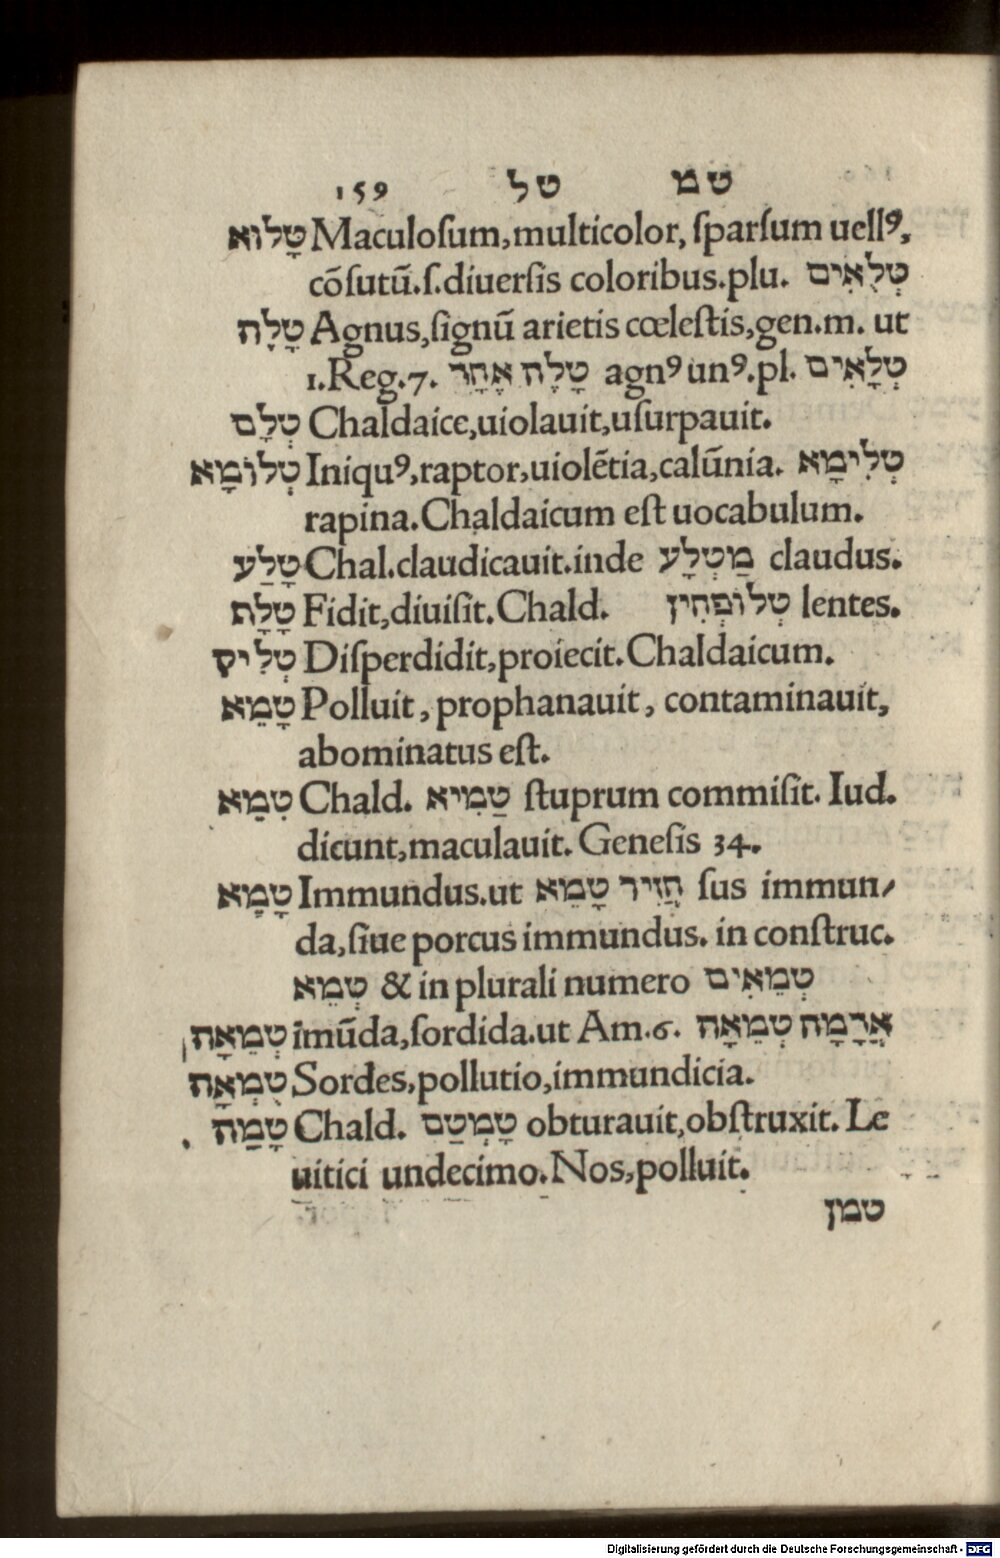 159 טל טמ
טָלוּא Maculoſum, multicolor, ſparſum uellꝰ,
cōſutū. ſ. diuerſis coloribus. plu. טְלֻאִים
טָלֶה Agnus, ſignū arietis cœleſtis, gen. m. ut
1. Reg. 7. טָלֶה אֶחָד agnꝰ unꝰ. pl. טְלָאִים
טְלַם Chaldaice, uiolauit, uſurpauit.
טְלוֹמָא Iniquꝰ, raptor, uiolētia, calūnia. טְלִימָא
rapina. Chaldaicum eſt uocabulum.
טָלַע Chal. claudicauit. inde מַטְלָע claudus.
טָלַח Fidit, diuiſit. Chald. טְלוֹפְחִין lentes.
טְלִיק Diſperdidit, proiecit. Chaldaicum.
טָמֵא Polluit, prophanauit, contaminauit,
abominatus eſt.
טִמֵּא Chald. טַמִיא ſtuprum commiſit. Iud.
dicunt, maculauit. Geneſis 34.
טָמֵא Immundus. ut חֲזִיר טָמֵא ſus immun⸗
da, ſiue porcus immundus. in conſtruc.
טְמֵא & in plurali numero טְמֵאִים
טְמֵאָה īmūda, ſordida. ut Am. 6. אֲדָמָה טְמֵאָה
טֻמְאָה Sordes, pollutio, immundicia.
טָמַה Chald. טָמְטַם obturauit, obſtruxit. Le
uitici undecimo. Nos, polluit.
טמן
Digitalisierung gefördert durch die Deutsche Forschungsgemeinschaft - DFG